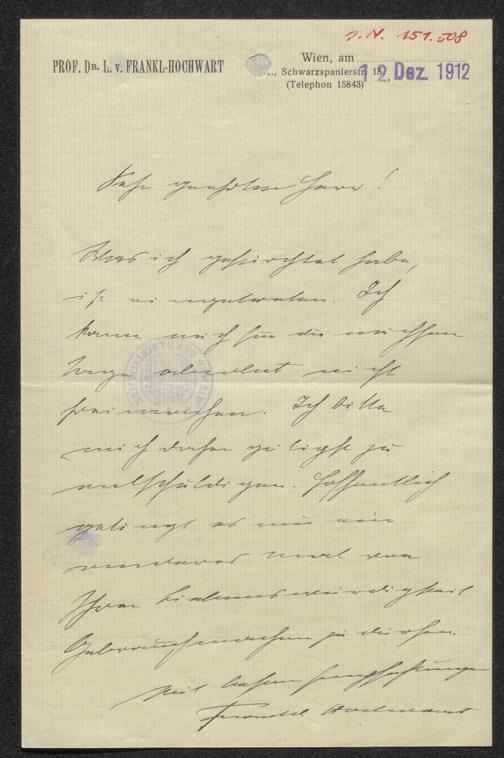 J.N. 151.508
PROF. DR. L. v. FRANKL-HOCHWART
Wien, am
12. Dez. 1912
.., Schwarzspanierstr. 15
(Telephon 15843)
Sehr geehrter Herr!
Was ich gefürchtet habe,
ist eingetreten. Ich
kann mich für die nächsten
Tage absolut nicht
freimachen. Ich bitte
mich daher gütigst zu
entschuldigen. Hoffentlich
gelingt es mir ein
anderes Mal von
Ihrer Liebenswürdigkeit
Gebrauch machen zu dürfen.
Mit besten Empfehlungen
Frankl Hochwart